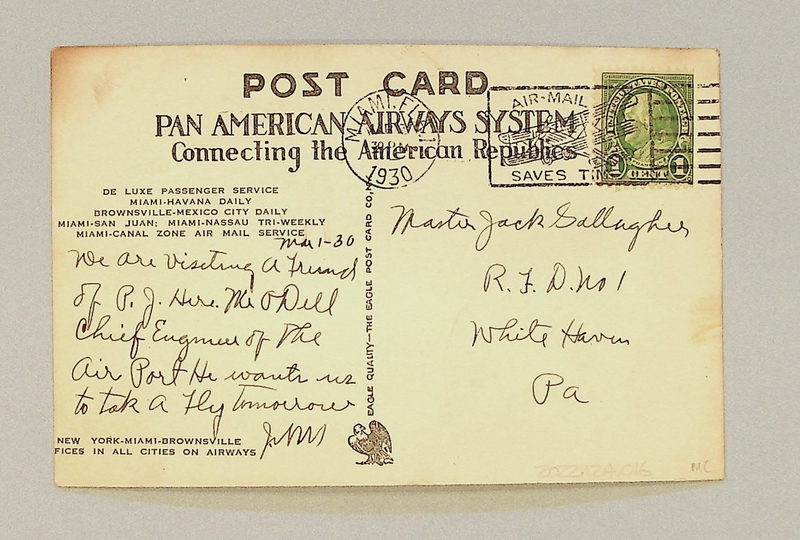 POST CARD
PAN AMERICAN AIRWAYS SYSTEM
Connecting the American Republics
MIAMI, FLA.
1930
AIR-MAIL
SAVES TIME
1 1
DE LUXE PASSENGER SERVICE
MIAMI-HAVANA DAILY
BROWNSVILLE-MEXICO CITY DAILY
MIAMI-SAN JUAN; MIAMI-NASSAU TRI-WEEKLY
MIAMI-CANAL ZONE AIR MAIL SERVICE
Mar 1-30
We are visiting a Friend
of P. J. Here. Mr O'Dell
Chief Engineer of the
Air Port He wants us
to tak a fly tomorrow
NEW YORK-MIAMI-BROWNSVILLE
FICES IN ALL CITIES ON AIRWAYS
EAGLE QUALITY—THE EAGLE POST CARD CO. N.
Master Jack Gallagher
R. F. D. No 1
White Haven
Pa
2022.124.016
MC